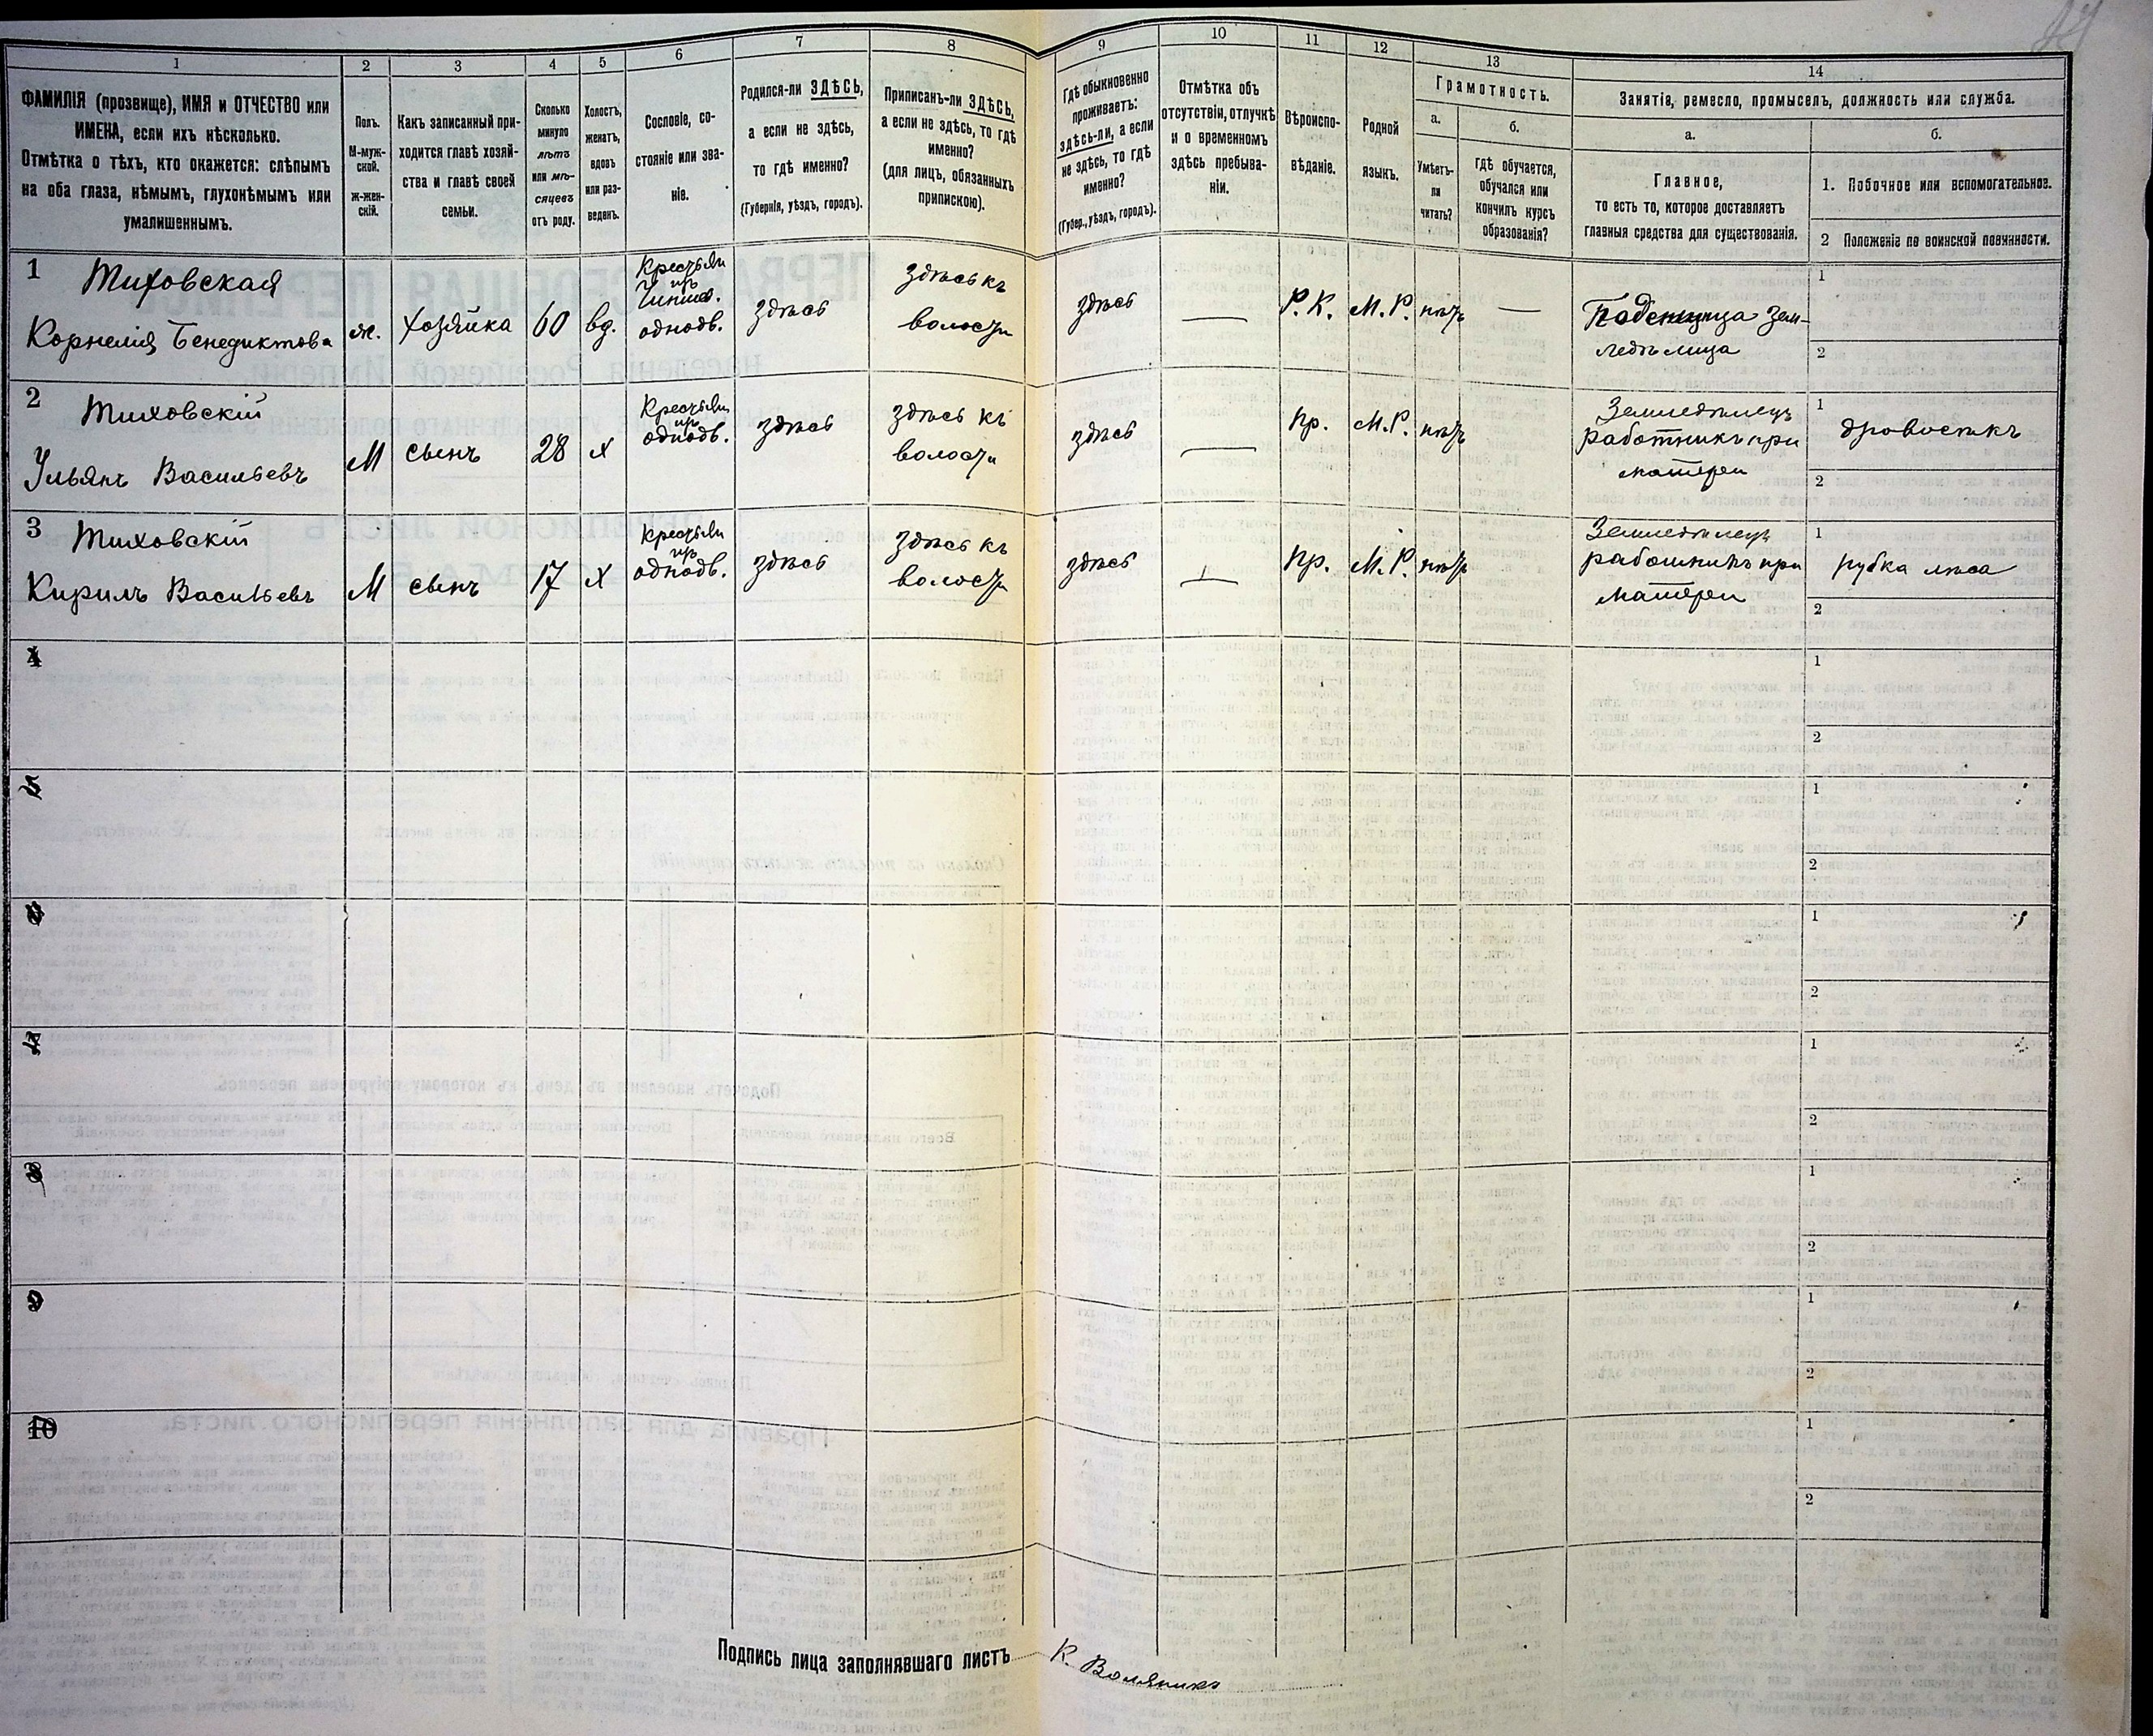 1 2 3 4 5 6 7 8 9 10 11 12 13 14
ФАМИЛІЯ (прозвище), ИМЯ и ОТЧЕСТВО или
ИМЕНА, если ихъ нѣсколько.
Отмѣтка о тѣхъ, кто окажется: слѣпымъ
на оба глаза, нѣмымъ, глухонѣмымъ или
умалишеннымъ.
Полъ.
М-муж-
ской.
ж-жен-
скій.
Какъ записанный при-
ходится главѣ хозяй-
ства и главѣ своей
семьи.
Сколько
минуло
лѣтъ
или мѣ-
сяцевъ
отъ роду.
Холостъ,
женатъ,
вдовъ
или раз-
веденъ.
Сословіе, со-
стояніе или зва-
ніе.
Родился-ли ЗДѢСЬ,
а если не здѣсь,
то гдѣ именно?
(Губернія, уѣздъ, городъ).
Приписанъ-ли ЗДѢСЬ,
а если не здѣсь, то гдѣ
именно?
(для лицъ, обязанныхъ
припискою).
Гдѣ обыкновенно
проживаетъ:
здѣсь-ли, а если
не здѣсь, то гдѣ
именно?
(Губер., уѣздъ, городъ).
Отмѣтка объ
отсутствіи, отлучкѣ
и о временномъ
здѣсь пребыва-
ніи.
Вѣроиспо-
вѣданіе.
Родной
языкъ.
Грамотность.
а.
Умѣетъ-
ли
читать?
б.
гдѣ обучается,
обучался или
кончилъ курсъ
образованія?
Занятіе, ремесло, промыселъ, должность или служба.
а.
Главное,
то есть то, которое доставляетъ
главныя средства для существованія.
б.
1. Побочное или вспомогательное.
2 Положеніе по воинской повинности.
1 Тиховская
Корнелія Бенедиктова
ж.
хозяйка
60
вд.
Крестьян
изъ
однодв.
здѣсь
здѣсь къ
волости
здѣсь
—
Р. К.
М. Р.
нѣтъ
—
Поденщица зем-
ледѣлица
1
2
2 Тиховскій
Ульянъ Васильевъ
М
сынъ
28
х
Крестьян
изъ
однодв.
здѣсь
здѣсь къ
волости
здѣсь
—
пр.
М. Р.
нѣтъ
Земледѣлецъ
работникъ при
матери
1 дровосѣкъ
2
3 Тиховскій
Кирилъ Васильевъ
М
сынъ
17
х
Крестьян
изъ
однодв.
здѣсь
здѣсь къ
волости
здѣсь
—
пр.
М. Р.
нѣтъ
Земледѣлецъ
работникъ при
матери
1 рубка лѣса
2
4
1
2
5
1
2
6
1
2
7
1
2
8
1
2
9
1
2
10
1
2
Подпись лица заполнявшаго листъ